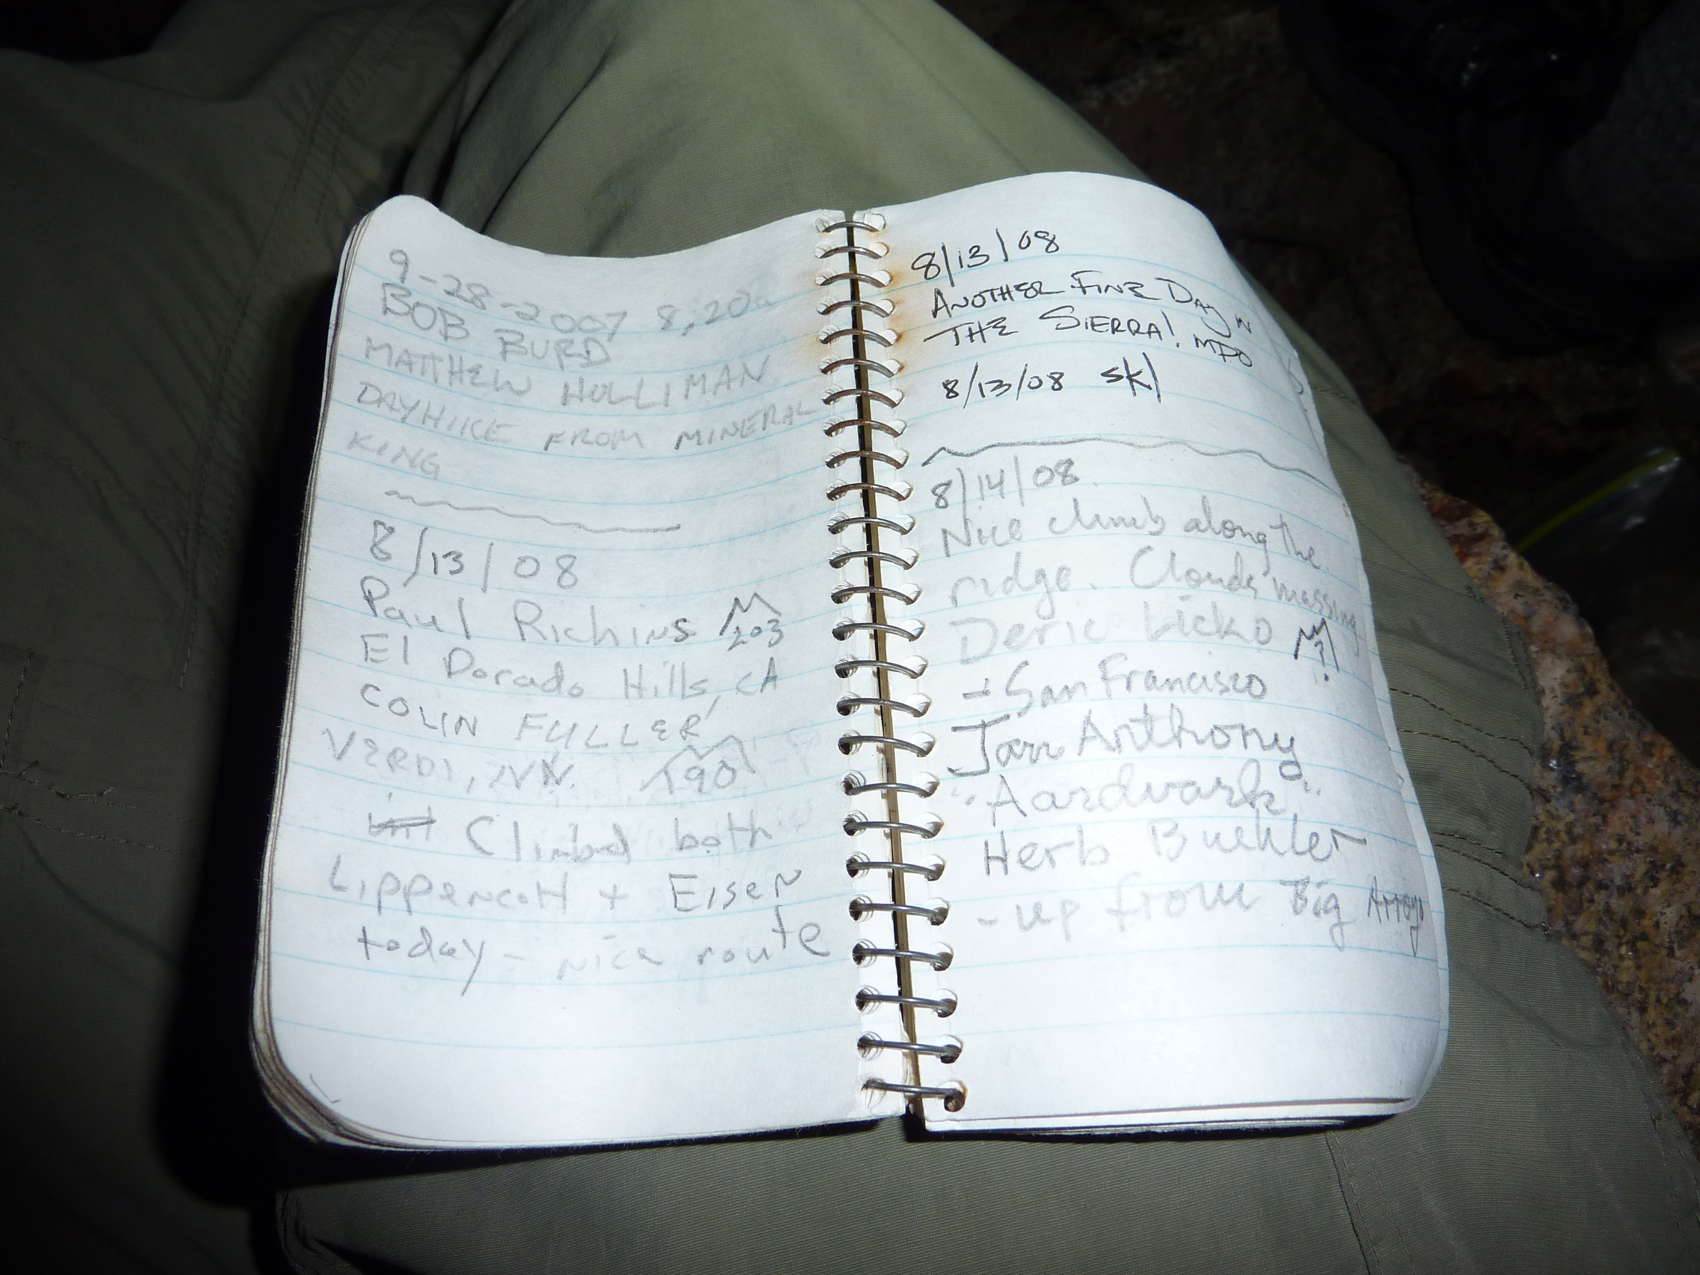 9-28-2007 8:20a
BOB BURD
MATTHEW HOLLIMAN
DAYHIKE FROM MINERAL
KING
8/13/08
Paul Richins 203
El Dorado Hills, CA
COLIN FULLER
VERDI, NV. 190
Climbed both
Lippencott + Eisen
today - nice route
8/13/08
ANOTHER FINE DAY IN
THE SIERRA! MPO
8/13/08 SKI
8/14/08
Nice climb along the
ridge. Clouds massing
Deric Licko ?
- San Francisco
Anthony
"Aardvark"
Herb Buehler
- up from Big Arroyo